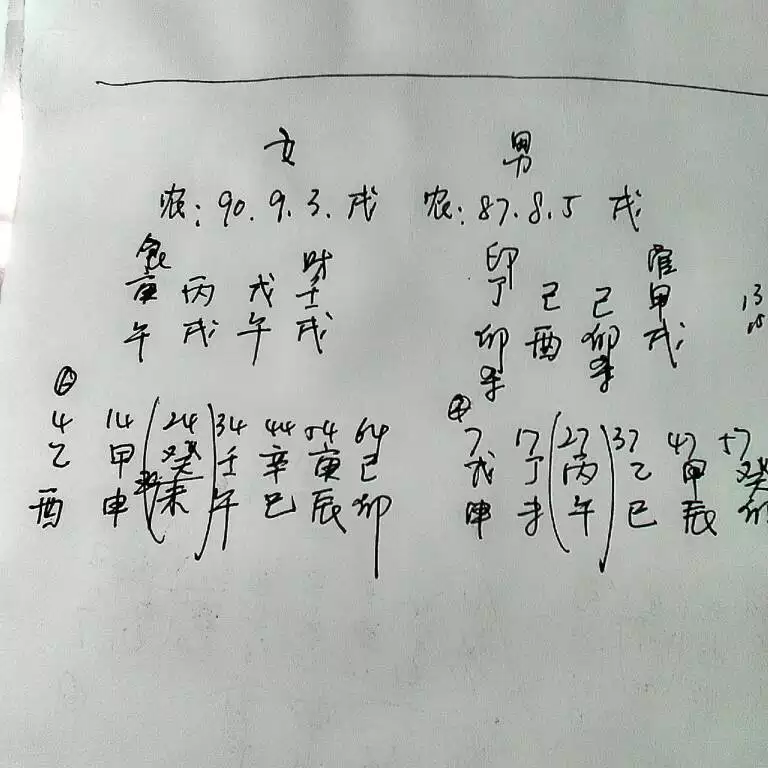 女 男
农: 90. 9. 3. 戌 农: 87. 8. 5 戌
食 财 印 官
庚 丙 戊 壬 丁 己 己 甲
午 戌 午 戌 卯 酉 卯 戌
4 14 24 34 44 54 64 7 17 27 37 47 57
乙 甲 癸 壬 辛 庚 己 戊 丁 丙 乙 甲 癸
酉 申 未 午 巳 辰 卯 申 未 午 巳 辰 卯